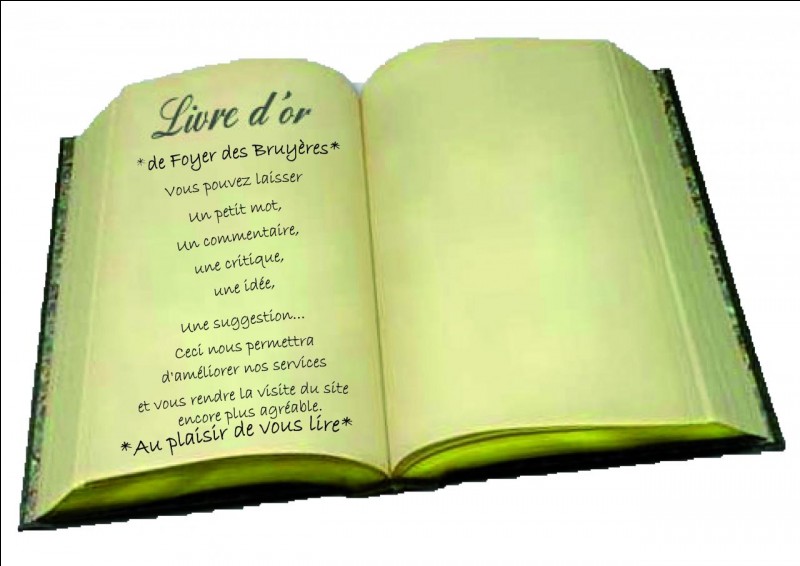 Livre d'or
*de Foyer des Bruyères*
Vous pouvez laisser
un petit mot,
un commentaire,
une critique,
une idée,
une suggestion...
Ceci nous permettra
d'améliorer nos services
et vous rendre la visite du site
encore plus agréable.
*Au plaisir de vous lire*